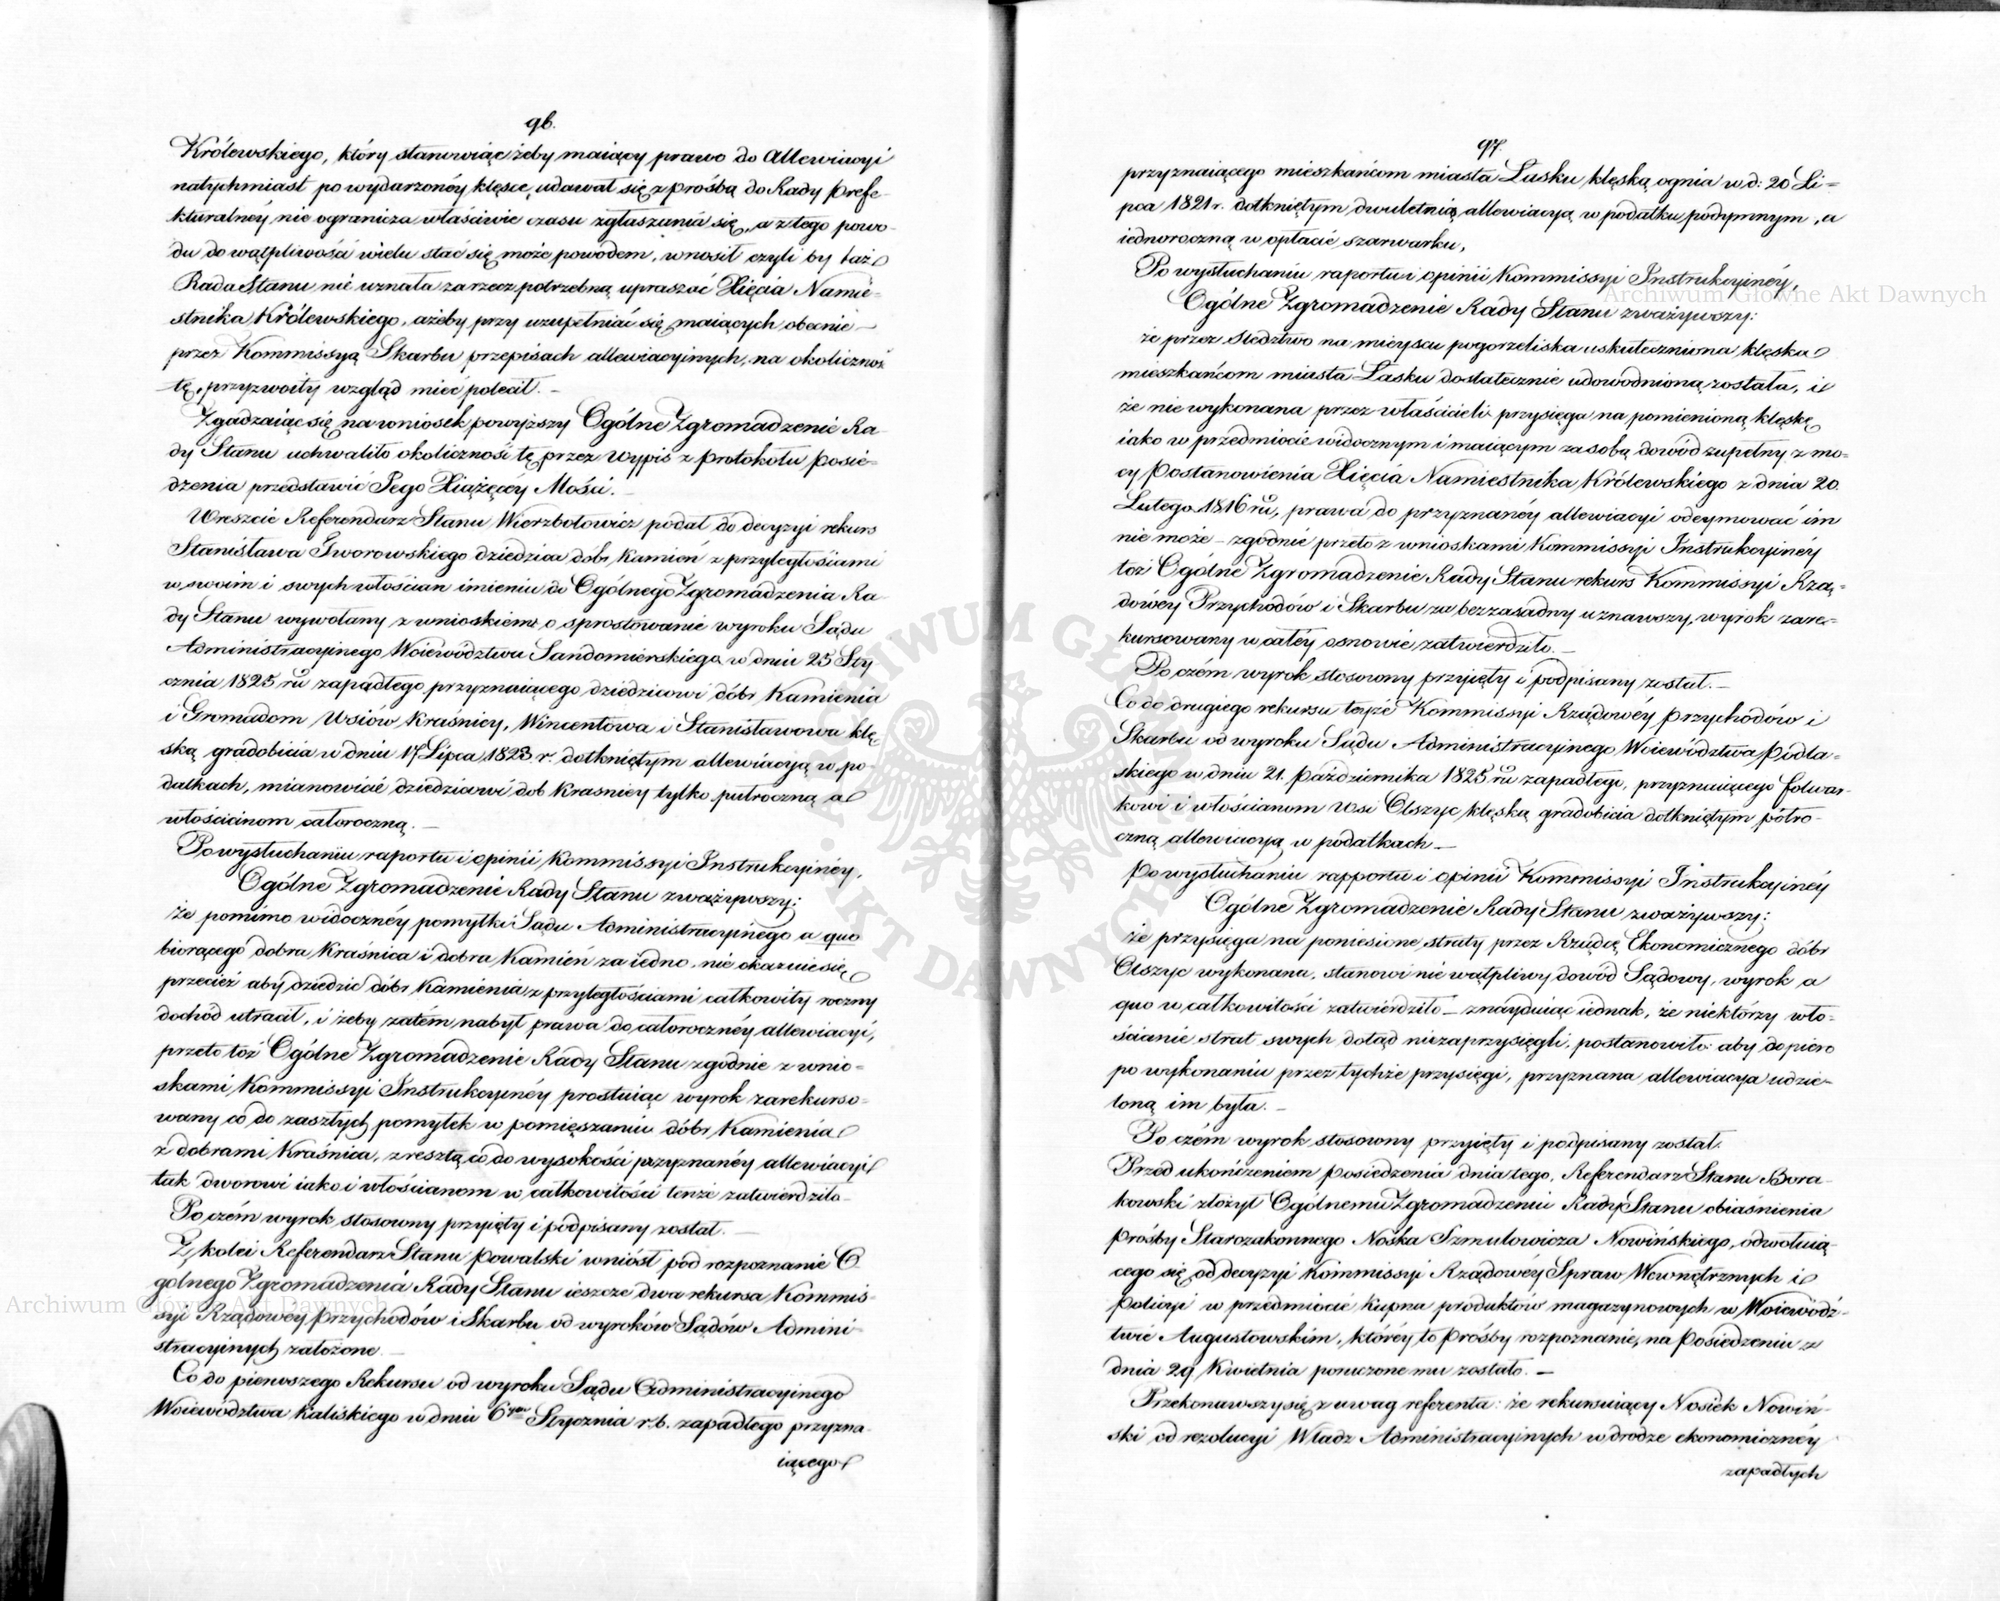 96.
Królewskiego, który stanowiąc żeby maiący prawo do Allewiacyi
natychmiast po wydarzonéy klęsce, udawał się z prośbą do Rady Prefe-
kturalnéy, nie ogranicza właściwie czasu zgłaszania się, a z tego powo-
du do wątpliwości wielu stać się może powodem, wnosił czyli by taż
Rada Stanu nie uznała za rzecz potrzebną upraszać Xięcia Namie-
stnika Królewskiego, ażeby przy uzupełniać się maiących obecnie
przez Kommissyą Skarbu przepisach allewiacyinych, na okoliczność
tę, przyzwoity wzgląd mieć polecił. —
Zgadzaiąc się na wniosek powyższy Ogólne Zgromadzenie Ra-
dy Stanu uchwaliło okoliczność tę przez wypis z protokołu posie-
dzenia przedstawić Jego Xiążęcéy Mości. —
Wreszcie Referendarz Stanu Wierzbołowicz podał do decyzyi rekurs
Stanisława Gworowskiego dziedzica dóbr Kamień z przyległościami
w swoim i swych włościan imieniu do Ogólnego Zgromadzenia Ra-
dy Stanu wywołany z wnioskiem o sprostowanie wyroku Sądu
Administracyinego Woiewództwa Sandomierskiego w dniu 25 Sty
cznia 1825 ru zapadłego przyznaiącego dziedzicowi dóbr Kamienia
i Gromadom Wsiów Kraśnicy, Wincentowa i Stanisławowa klę
ską gradobicia w dniu 17 Lipca 1823 r. dotkniętym allewiacyą w po-
datkach, mianowicie dziedzicowi dób Krasnicy tylko pułroczną a
włościanom całoroczną. —
Po wysłuchaniu raportu i opinii Kommissyi Instrukcyinéy,
Ogólne Zgromadzenie Rady Stanu zważywszy:
że pomimo widocznéy pomyłki Sadu Administracyinego a quo
biorącego dobra Kraśnica i dobra Kamień za iedno, nie okazuie się
przecież aby dziedzic dóbr Kamienia z przyległościami całkowity roczny
dochód utracił, i żeby zatém nabył prawa do całorocznéy allewiacyi,
przeto toż Ogólne Zgromadzenie Rady Stanu zgodnie z wnio-
skami Kommissyi Instrukcyinéy prostuiąc wyrok zarekurso-
wany co do zaszłych pomyłek w pomięszaniu dóbr Kamienia
z dobrami Kraśnica, zresztą co do wysokości przyznanéy allewiacyi
tak dworowi iako i włościanom w całkowitości tenże zatwierdziło
Po czém wyrok stosowny przyięty i podpisany został. —
Z kolei Referendarz Stanu Powalski wniósł pod rozpoznanie O
gólnego Zgromadzenia Rady Stanu ieszcze dwa rekursa Kommis-
syi Rządowéy Przychodów i Skarbu od wyroków Sądów Admini
stracyinych założone. —
Co do pierwszego Rekursu od wyroku Sądu Administracyinego
Woiewództwa Kaliskiego w dniu 6 Stycznia r.b. zapadłego przyzna-
iącego
97.
przyznaiącego mieszkańcom miasta Łasku klęską ognia w d: 20 Li=
pca 1821 r. dotkniętym dwuletnią allewiacyą w podatku podymnym, a
iednoroczną w opłacie szarwarku,
Po wysłuchaniu raportu i opinii Kommissyi Instrukcyinéy,
Ogólne Zgromadzenie Rady Stanu zważywszy:
że przez śledztwo na mieyscu pogorzeliska uskutecznione klęska
mieszkańcom miasta Łasku dostatecznie udowodnioną została, i
że nie wykonana przez właścicieli przysięga na pomienioną klęskę
iako w przedmiocie widocznym i maiącym za sobą dowód zupełny z mo-
cy Postanowienia Xięcia Namiestnika Królewskiego z dnia 20.
Lutego 1816 ru, prawa do przyznanéy allewiacyi odeymować im
nie może — zgodnie przeto z wnioskami Kommissyi Instrukcyinéy
toż Ogólne Zgromadzenie Rady Stanu rekurs Kommissyi Rzą-
dowéy Przychodów i Skarbu za bezzasadny uznawszy, wyrok zare-
kursowany w całéy osnowie zatwierdziło. —
Po czém wyrok stosowny przyięty i podpisany został. —
Co do drugiego rekursu teyże Kommissyi Rządowéy Przychodów i
Skarbu od wyroku Sądu Administracyinego Woiewództwa Podla-
skiego w dniu 21. Października 1825 ru zapadłego, przyznaiącego folwar-
kowi i włościanom Wsi Olszyc klęską gradobicia dotkniętym półro-
czną allewiacyą w podatkach —
Po wysłuchaniu rapportu i opinii Kommissyi Instrukcyinéy
Ogólne Zgromadzenie Rady Stanu zważywszy:
że przysięga na poniesione straty przez Rządcę Ekonomicznego dóbr
Olszyc wykonana, stanowi nie wątpliwy dowód Sądowy, wyrok a
quo w całkowitości zatwierdziło — znayduiąc iednak, że niektórzy wło-
ścianie strat swych dotąd niezaprzysięgli, postanowiło: aby dopiero
po wykonaniu przez tychże przysięgi, przyznana allewiacya udzie-
loną im była. —
Po czém wyrok stosowny przyięty i podpisany został.
Przed ukończeniem posiedzenia dnia tego, Referendarz Stanu Bora-
kowski złożył Ogólnemu Zgromadzeniu Rady Stanu obiaśnienia
prośby Starozakonnego Nośka Szmulowicza Nowińskiego, odwołuią-
cego się od decyzyi Kommissyi Rządowéy Spraw Wewnętrznych i
Policyi w przedmiocie kupna produktów magazynowych w Woiewódz-
twie Augustowskim, któréy to prośby rozpoznanie, na Posiedzeniu z
dnia 29 Kwietnia poruczone mu zostało. —
Przekonawszy się z uwag referenta: że rekursuiący Nosiek Nowiń-
ski od rezolucyi Władz Administracyinych w drodze ekonomicznéy
zapadłych
Archiwum Główne Akt Dawnych
Archiwum Główne Akt Dawnych
ARCHIWUM GŁÓWNE AKT DAWNYCH